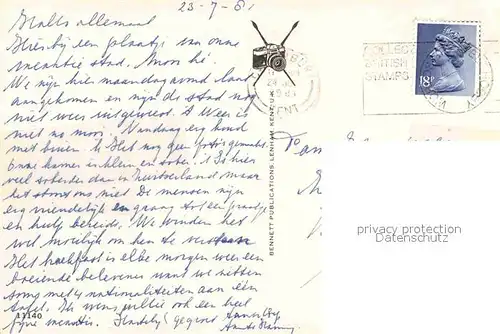 23-7-81
Hallo allemaal
Hierbij een plaatje van onze
vacantie stad. Mooi hé.
We zijn hier maandagavond laat
aangekomen en zijn de stad nog
niet weer uitgeweest. 't Weer is
niet zo mooi. Vandaag erg koud
met buien. Ik Heb nog geen foto's gemaakt.
Onze kamer is klein en sober. 't Is hier
veel soberder dan in Zwitserland maar
het stoort ons niet. De mensen zijn
erg vriendelijk en graag tot een praatje
en hulp bereid. We vinden het
wel moeilijk om hen te verstaan
Het breakfast is elke morgen weer een
boeiende belevenis want we zitten
soms met 4 nationaliteiten aan één
tafel. Ik wens jullie ook een heel
fijne vacantie. Hartelijk gegroet
11140
BENNETT PUBLICATIONS, LENHAM, KENT, U.K.
KENT
COLLECT
BRITISH
STAMPS
18P
privacy protection
Datenschutz